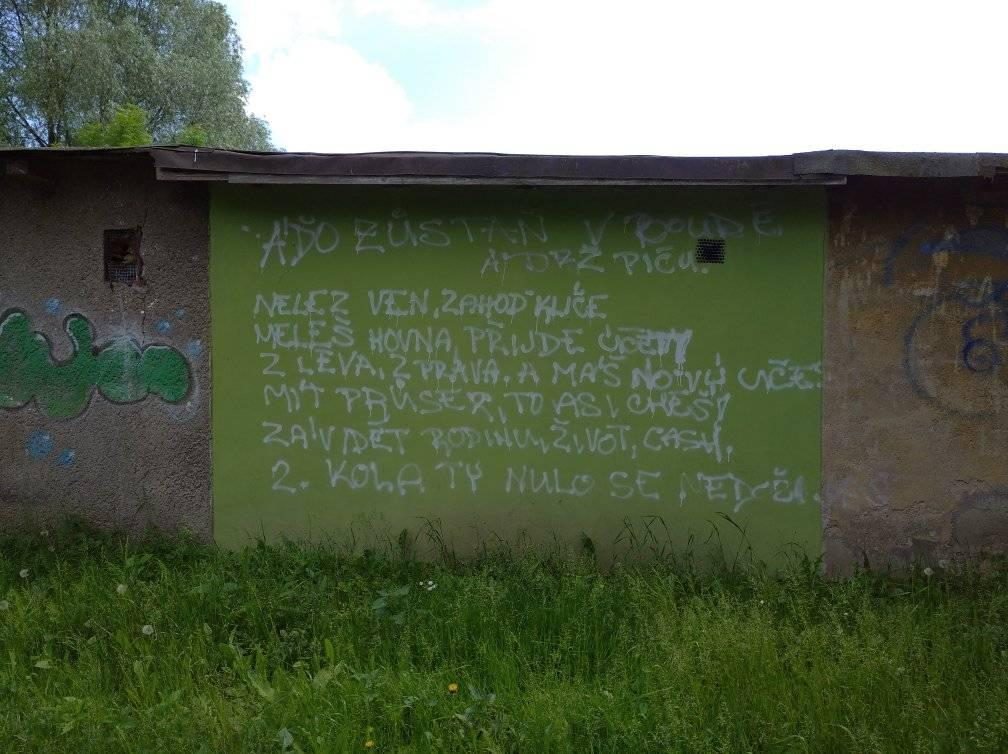 AĎO ZŮSTAŇ V BOUDĚ
A DRŽ PIČU.
NELEZ VEN, ZAHOĎ KLÍČE
MELEŠ HOVNA PŘIJDE ÚČET
Z LEVA, Z PRAVA, A MAŠ NOVÝ
MÍT PRŮSER, TO ASI CHEŠ
ZÁVIDĚT RODINU, ŽIVOT, CASH,
2. KOLA TY NULO SE